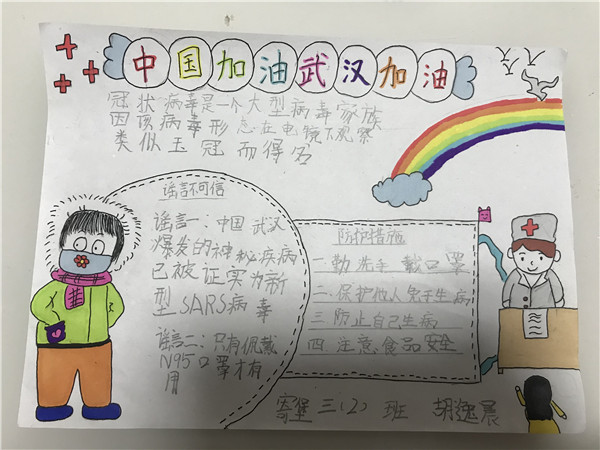 中国加油武汉加油
冠状病毒是一个大型病毒家族
因该病毒形态在电镜下观察
类似王冠而得名
谣言不可信
谣言一:中国武汉
爆发的神秘疾病
已被证实为新
型SARS病毒
谣言二:只有佩戴
N95口罩才有
用
防护措施
一.勤洗手 戴口罩
二.保护他人免于生病
三.防止自己生病
四.注意食品安全
寄堡三(2)班 胡逸晨